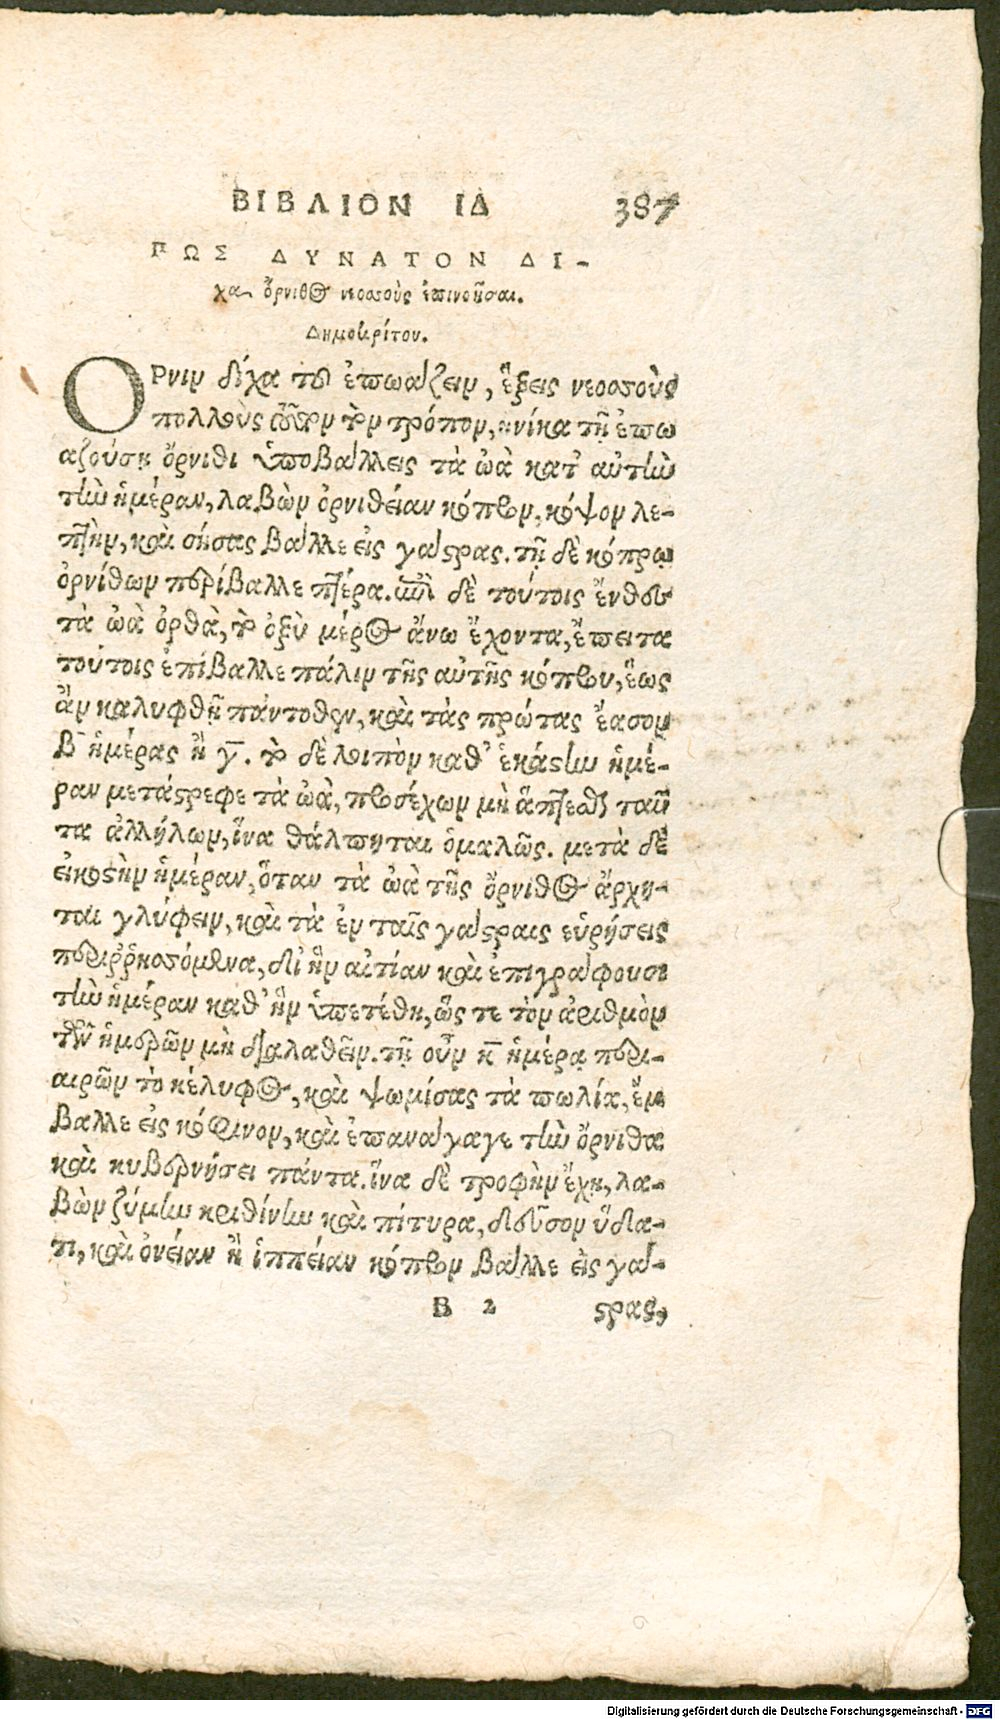 ΒΙΒΛΙΟΝ ΙΔ 387
ΠΩΣ ΔΥΝΑΤΟΝ ΔΙ-
χα ὄρνιθος νεοσσοὺς ἐπινοῆσαι.
Δημοκρίτου.
ΟΡνιν δίχα τοῦ ἐπωάζειν, ἕξεις νεοσσοὺς
πολλοὺς τοῦτον τὸν τρόπον, ἡνίκα τῇ ἐπω
αζούσῃ ὄρνιθι ὑποβάλλεις τὰ ὠὰ κατ' αὐτὴν
τὴν ἡμέραν, λαβὼν ὀρνιθείαν κόπρον, κόψον λε-
πτὴν, καὶ σήσας βάλλε εἰς γάστρας. τῇ δὲ κόπρῳ
ὀρνίθων περίβαλλε πτέρα. ἐπὶ δὲ τούτοις ἔνθου
τὰ ὠὰ ὀρθὰ, τὸ ὀξὺ μέρος ἄνω ἔχοντα, ἔπειτα
τούτοις ἐπίβαλλε πάλιν τῆς αὐτῆς κόπρου, ἕως
ἂν καλυφθῇ πάντοθεν, καὶ τὰς πρώτας ἔασον
β ἡμέρας ἢ γ. τὸ δὲ λοιπὸν καθ' ἑκάστην ἡμέ-
ραν μετάστρεφε τὰ ὠὰ, προσέχων μὴ ἅπτεσθαι ταῦ
τα ἀλλήλων, ἵνα θάλπηται ὁμαλῶς. μετὰ δὲ
εἰκοστὴν ἡμέραν, ὅταν τὰ ὠὰ τῆς ὄρνιθος ἄρχη-
ται γλύφειν, καὶ τὰ ἐν ταῖς γάστραις εὑρήσεις
περιῤῥησσόμενα, δι' ἣν αἰτίαν καὶ ἐπιγράφουσι
τὴν ἡμέραν καθ' ἣν ὑπετέθη, ὥς τε τὸν ἀριθμὸν
τῶν ἡμερῶν μὴ διαλαθεῖν. τῇ οὖν κ ἡμέρᾳ περι-
αιρῶν τὸ κέλυφος, καὶ ψωμίσας τὰ πωλία, ἔμ
βαλλε εἰς κόφινον, καὶ ἐπανάγαγε τὴν ὄρνιθα
καὶ κυβερνήσει πάντα. ἵνα δὲ τροφὴν ἔχῃ, λα-
βὼν ζύμην κριθίνην καὶ πίτυρα, δεῦσον ὕδα-
τι, καὶ ὀνείαν ἢ ἱππείαν κόπρον βάλλε εἰς γάσ-
Β 2 στρας,
Digitalisierung gefördert durch die Deutsche Forschungsgemeinschaft - DFG